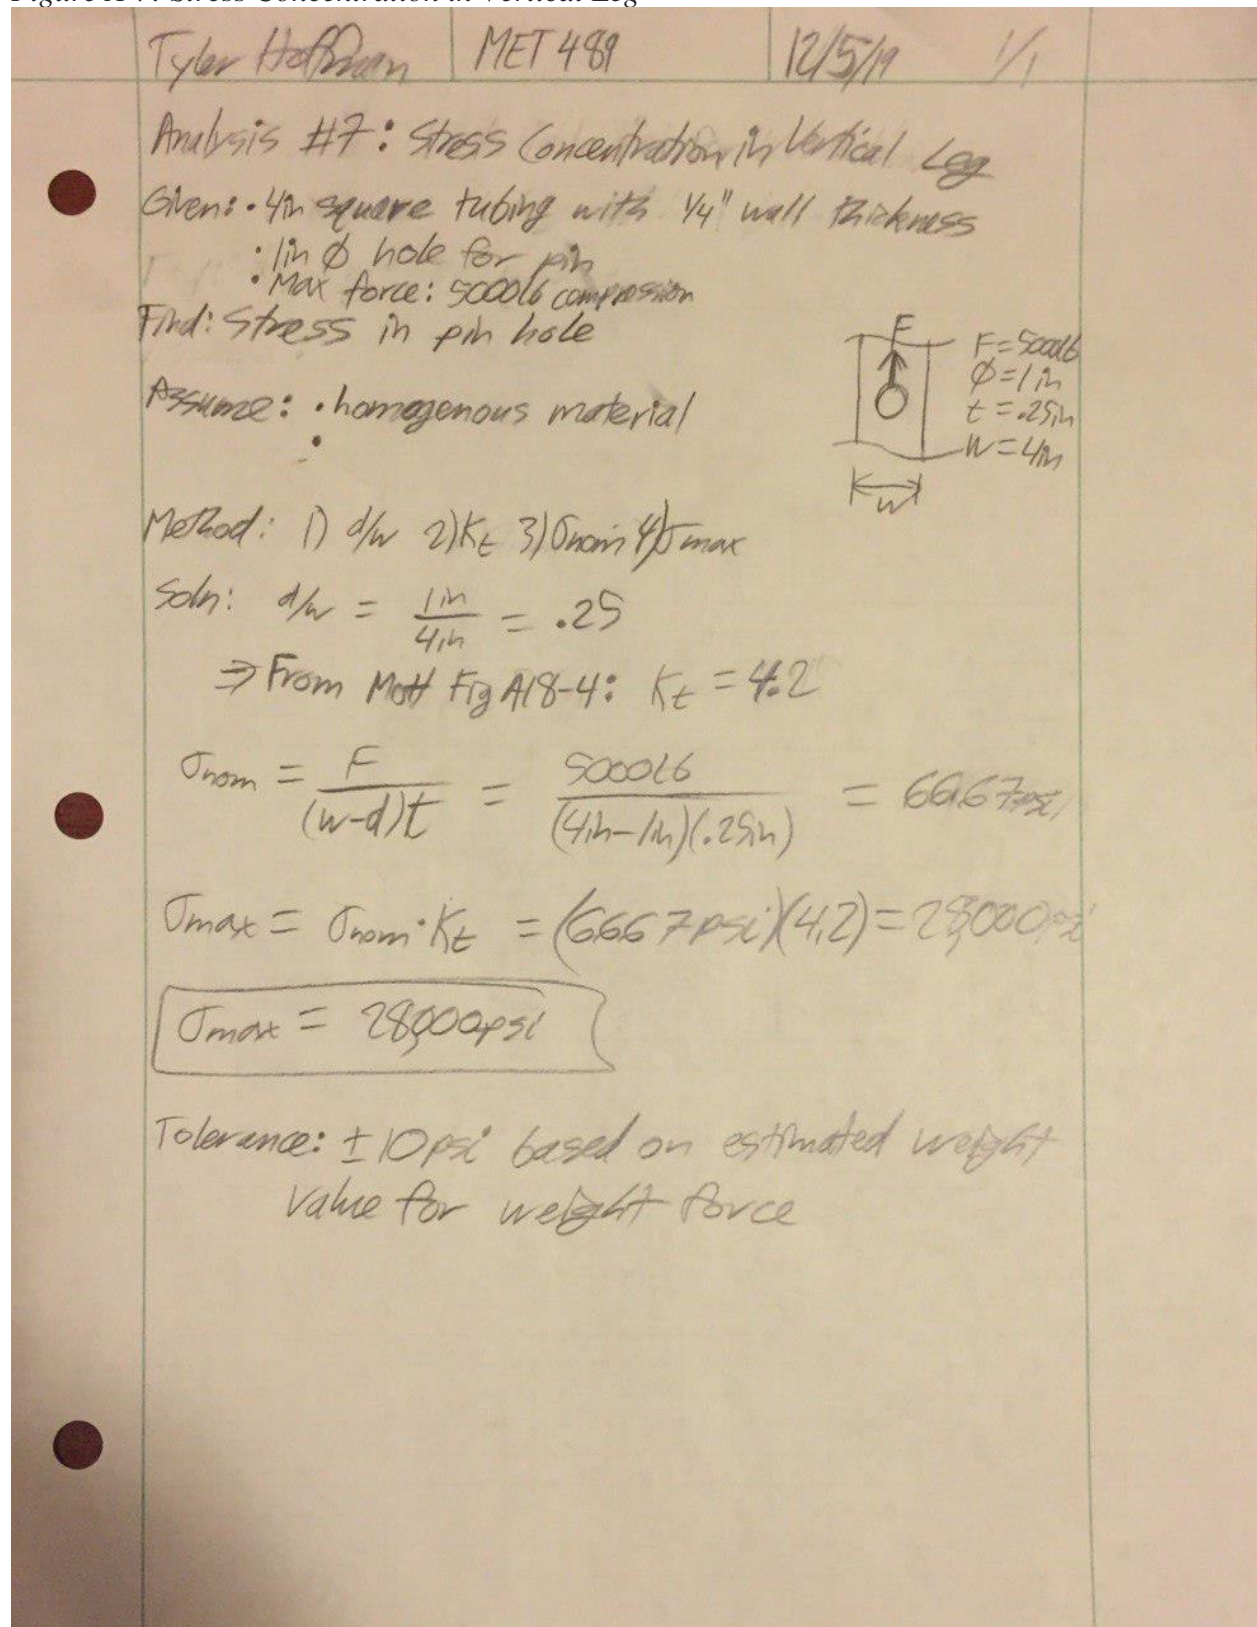 Tyler Hoffman MET 489 12/5/19 1/1
Analysis #7: Stress Concentration in Vertical Leg
Given: • 4in square tubing with 1/4" wall thickness
• 1in ϕ hole for pin
• Max force: 5000lb compression
Find: Stress in pin hole
F
F=5000lb
ϕ=1in
t=.25in
W=4in
W
Assume: • homogenous material
•
Method: 1) d/w 2) Kt 3) σnom 4) σmax
Soln: d/w = 1in/4in = .25
⇒ From Mott Fig A18-4: Kt = 4.2
σnom = F/(w-d)t = 5000lb/(4in-1in)(.25in) = 6667psi
σmax = σnom · Kt = (6667psi)(4.2) = 28,000psi
σmax = 28,000psi
Tolerance: ± 10psi based on estimated weight
value for weight force